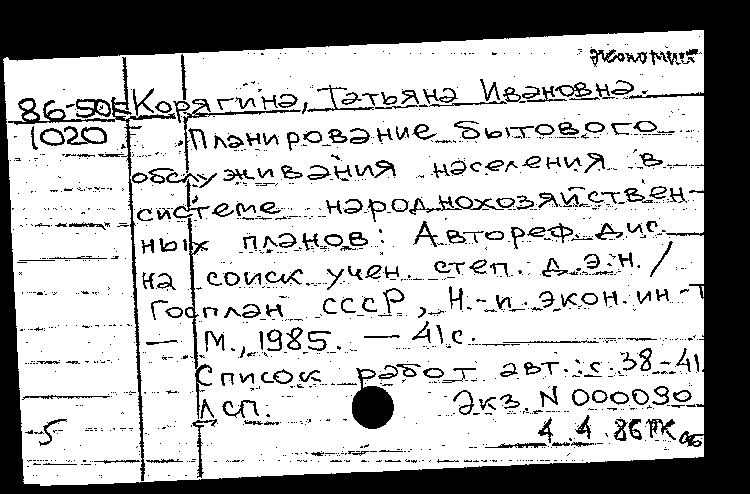 экономия
86-50к Корягина, Татьяна Ивановна.
1020 Планирование бытового
обслуживания населения в
системе народнохозяйствен-
ных планов: Автореф. дис.
на соиск учен. степ. д.э.н. /
Госплан СССР, Н.-и. экон. ин-т
— М., 1985. — 41 с.
Список работ авт.: с. 38-41
ДСП. Экз. N 000030
5 4.4.86 РК